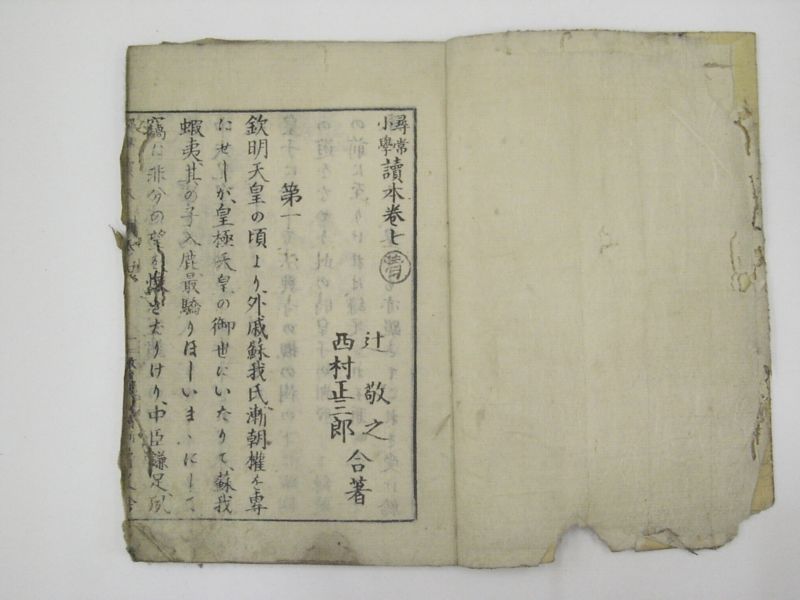 尋常小學讀本卷七
辻敬之
西村正三郎 合著
第一
欽明天皇の頃より、外戚蘇我氏漸朝權を專
にせしが、皇極天皇の御世にいたりて、蘇我
蝦夷其の子入鹿最驕りほしいまゝにして
竊に非分の望を懷き大りけり、中臣鎌足